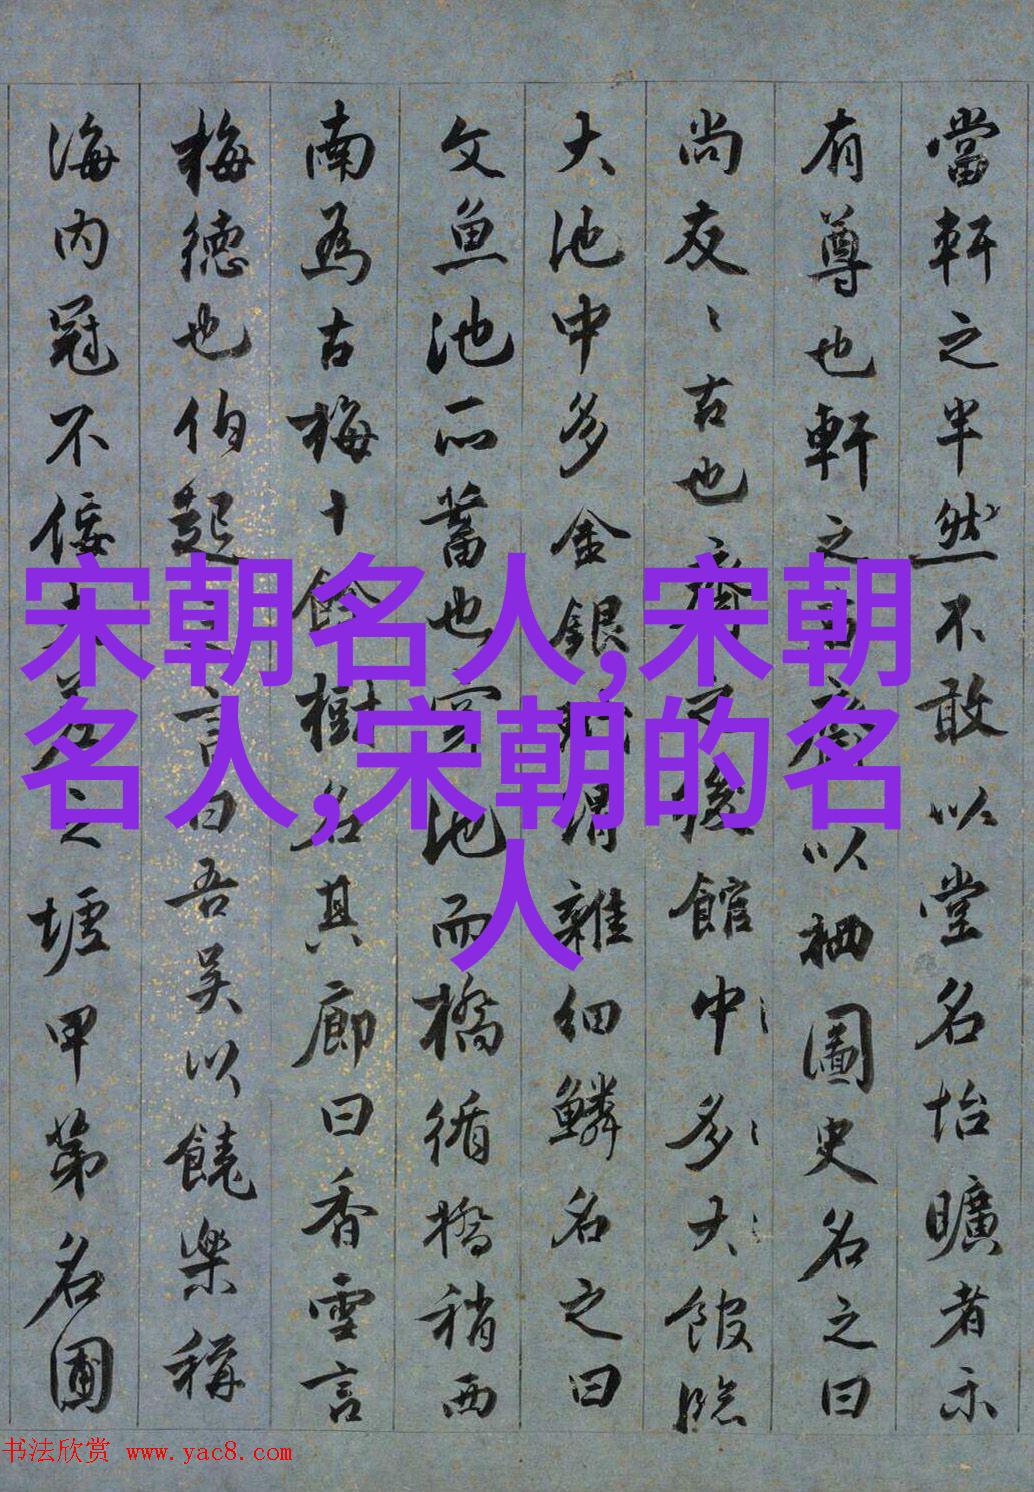 當軒之半然不敢以堂名怡曠者示
有尊也軒之以栖圖史名之曰
尚友〻古也齋之後館中〻多〻大〻館臨
大池中多金銀雜細鱗名之曰
文魚池所蓄也池而橋循橋稍西
南為古梅十餘樹名其廊曰香雪言
梅德也伯起言曰吾吳以饒樂稱
海内冠不佞之墟甲第名圃
宋朝名人,宋朝
名人,宋朝的名
人
书法欣赏 www.yac8.com